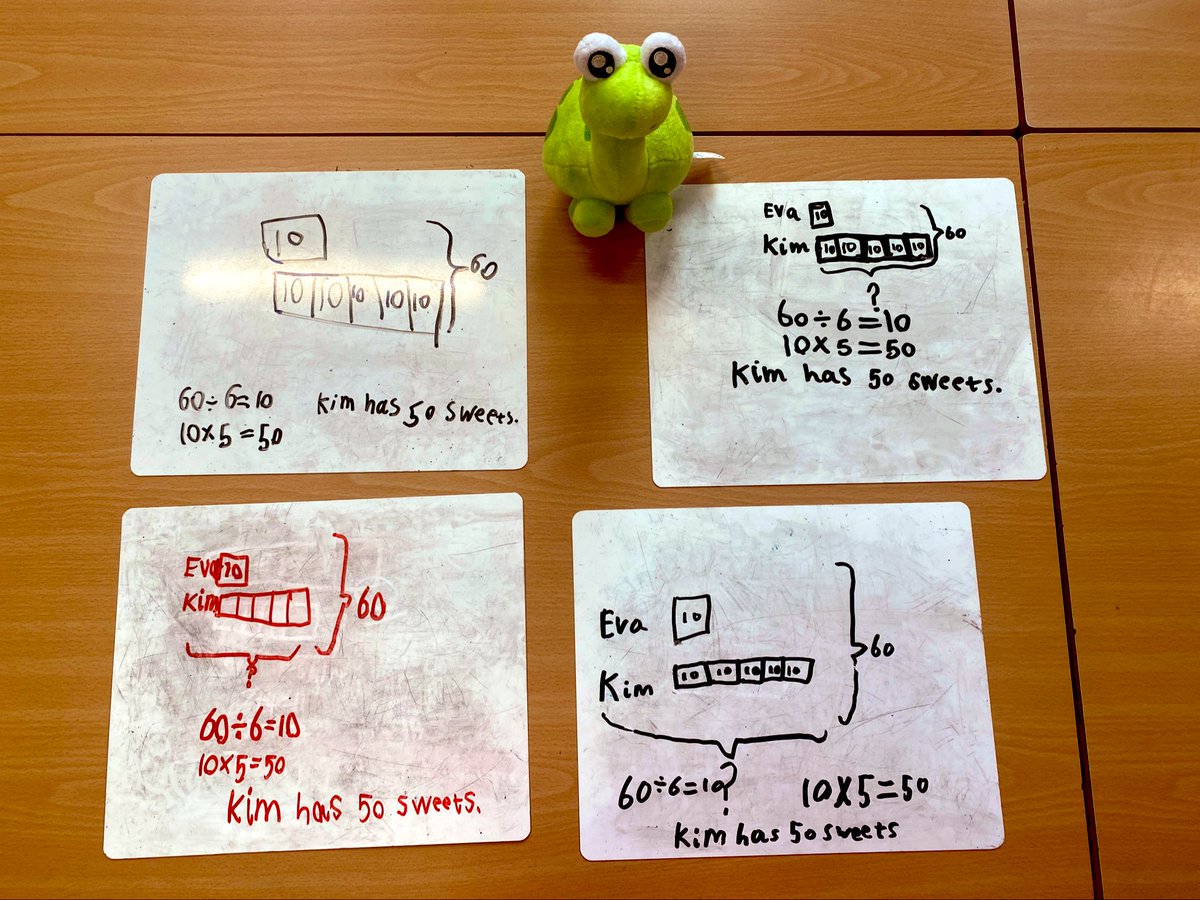 10
60
10 10 10 10 10
60÷6=10
10×5=50
Kim has 50 sweets.
Eva 10
Kim 10 10 10 10 10
60
?
60÷6=10
10×5=50
Kim has 50 sweets.
Eva 10
Kim
60
?
60÷6=10
10×5=50
Kim has 50 sweets.
Eva 10
60
Kim 10 10 10 10 10
?
60÷6=10
10×5=50
Kim has 50 sweets